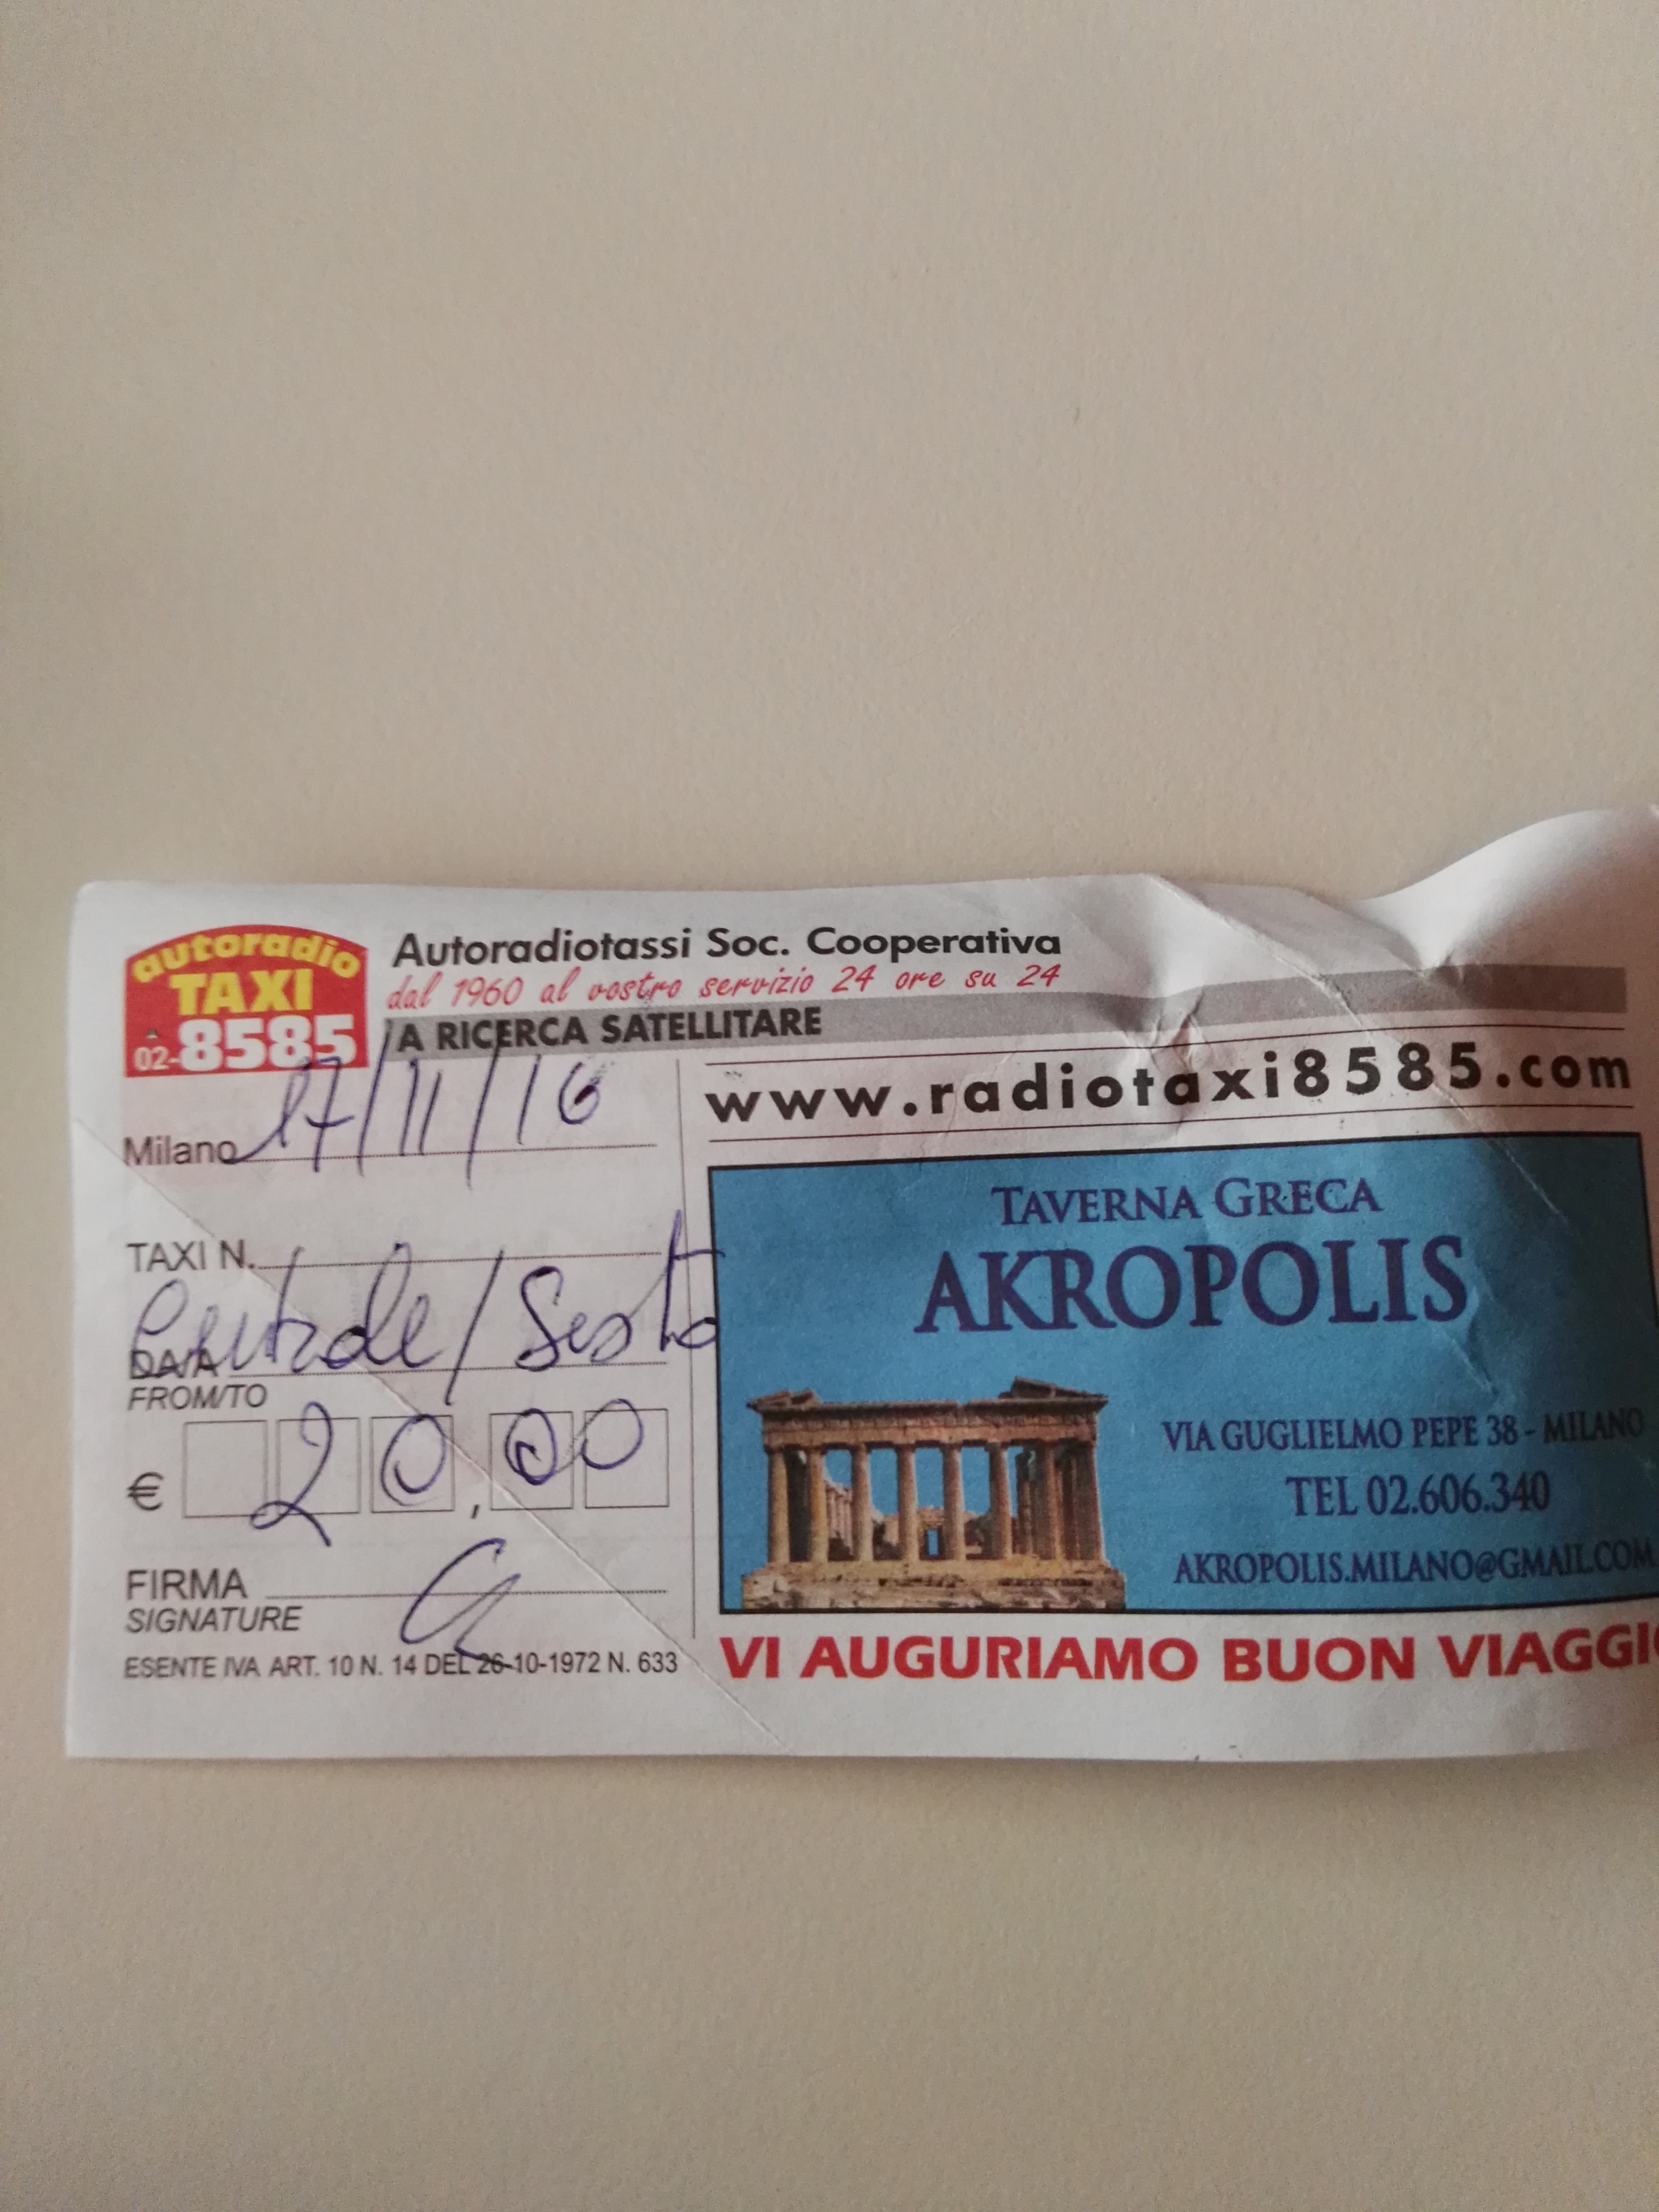 autoradio
TAXI
02-8585
Autoradiotassi Soc. Cooperativa
dal 1960 al vostro servizio 24 ore su 24
A RICERCA SATELLITARE
Milano 17/11/16
TAXI N.
DA/A Centrale/Sesto
FROM/TO
€ 20,00
FIRMA
SIGNATURE
ESENTE IVA ART. 10 N. 14 DEL 26-10-1972 N. 633
www.radiotaxi8585.com
TAVERNA GRECA
AKROPOLIS
VIA GUGLIELMO PEPE 38 - MILANO
TEL 02.606.340
AKROPOLIS.MILANO@GMAIL.COM
VI AUGURIAMO BUON VIAGGIO